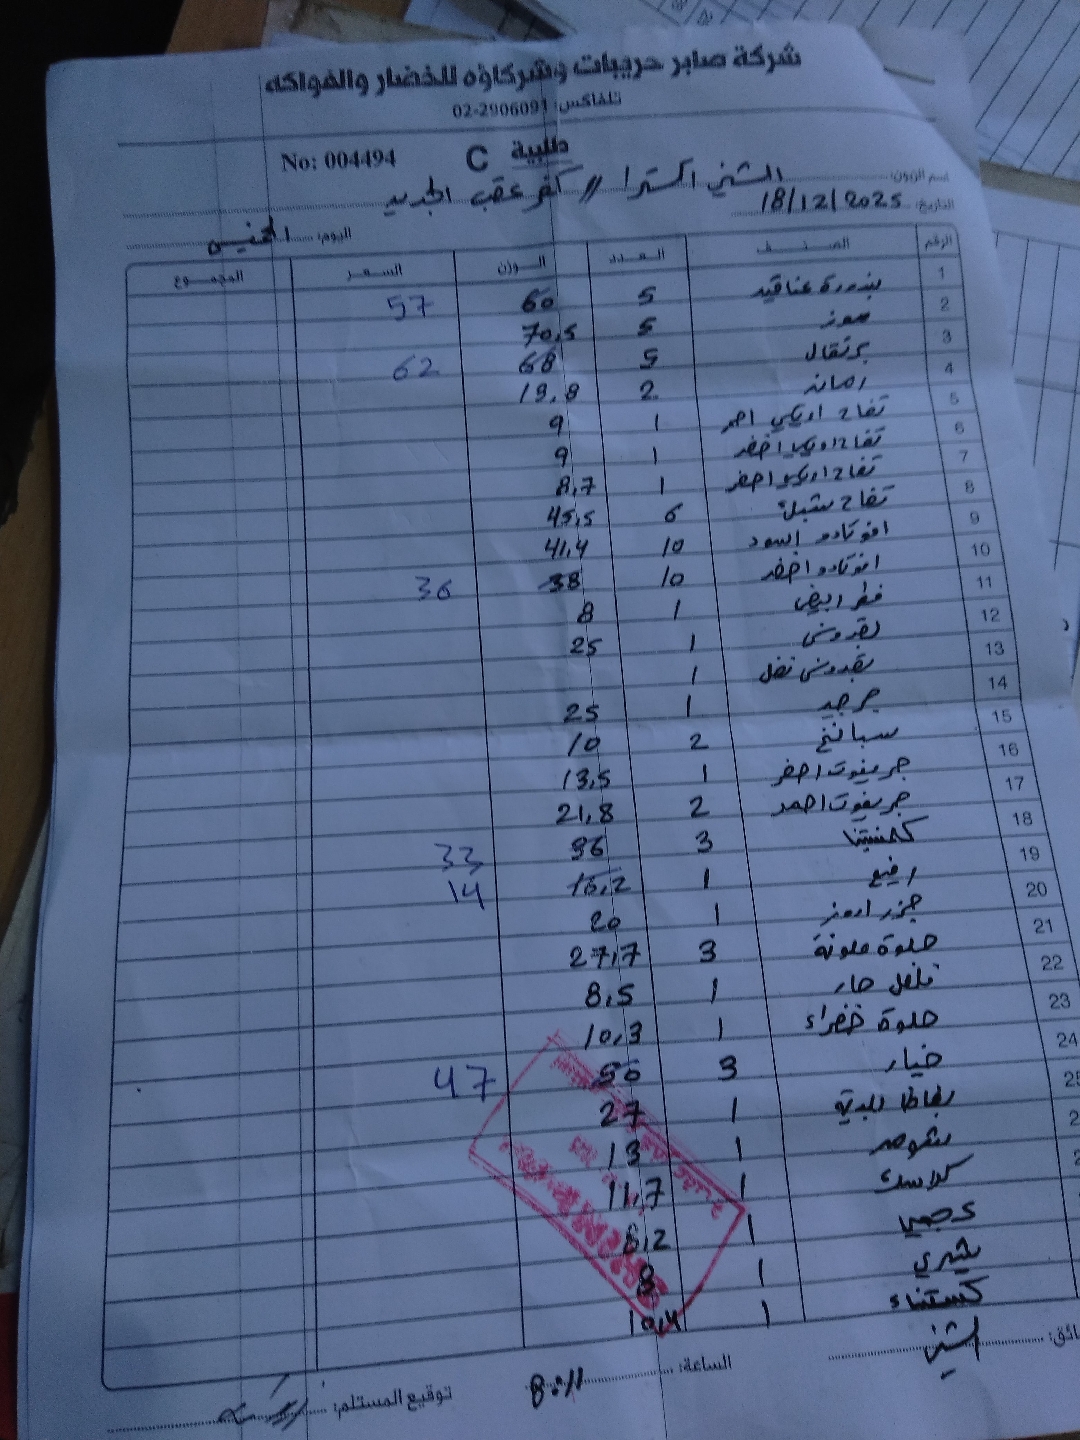 شركة صابر حريبات وشركاؤه للخضار والفواكه
تلفاكس: 02-2906091
طلبية C No: 004494
اسم الزبون: الشني اكسترا // كفر عقب الجديد
التاريخ: 18/12/2025
اليوم: الخميس
الرقم الصنف العدد الوزن السعر المجموع
1 بندورة عناقيد 5 60 57
2 موز 5 70,5
3 برتقال 5 68 62
4 رمان 2 19,8
5 تفاح امريكي احمر 1 9
6 تفاح امريكي اخضر 1 9
7 تفاح امريكي اصفر 1 8,7
8 تفاح 6 45,5
9 افوكادو اسود 10 41,4
10 افوكادو اخضر 10 38 36
11 فطر ابيض 1 8
12 بقدونس 1 25
13 بقدونس 1
14 جرجير 1 25
15 سبانخ 2 10
16 جريفوت اصفر 1 13,5
17 جريفوت احمر 2 21,8
18 كلمنتينا 3 36 33
19 1 16,2 14
20 جزر 1 20
21 حلوة ملونة 3 27,7
22 فلفل حار 1 8,5
23 حلوة خضراء 1 10,3
24 خيار 3 50 47
25 بطاطا 1 27
شومر 1 13
1 11,7
عجمي 1 8,2
شيري 1 8
كستناء 1 10,4
الساعة: 8:11
توقيع المستلم: